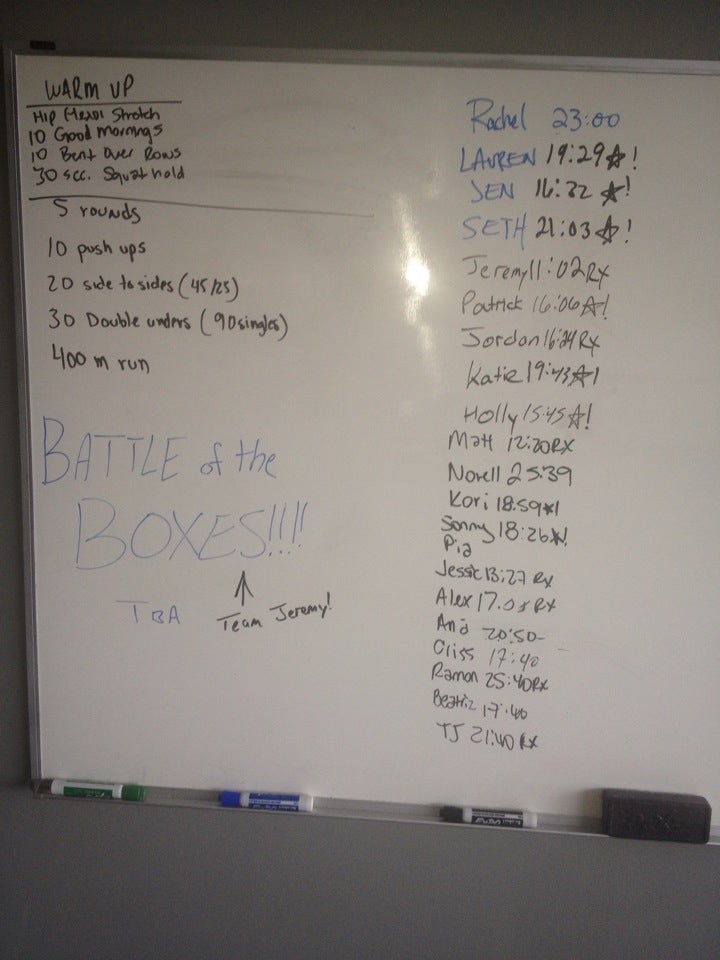 WARM UP
Hip Flexor Stretch
10 Good mornings
10 Bent Over Rows
30 sec. Squat hold
5 rounds
10 push ups
20 side to sides (45/25)
30 Double unders (90 singles)
400 m run
BATTLE of the
BOXES!!!!
TBA
Team Jeremy!
Rachel 23:00
LAUREN 19:29☆!
JEN 16:32 ☆!
SETH 21:03☆!
Jeremy 11:02 Rx
Patrick 16:06☆!
Jordan 16:24 Rx
Katie 19:43☆!
Holly 15:45☆!
Matt 12:20 RX
Norell 25:39
Kori 18:59☆!
Sonny 18:26☆!
Pia
Jessie 13:27 Rx
Alex 17:05 Rx
Ana 20:50
Cliss 17:40
Ramon 25:40 Rx
Beatriz 17:40
TJ 21:40 Rx